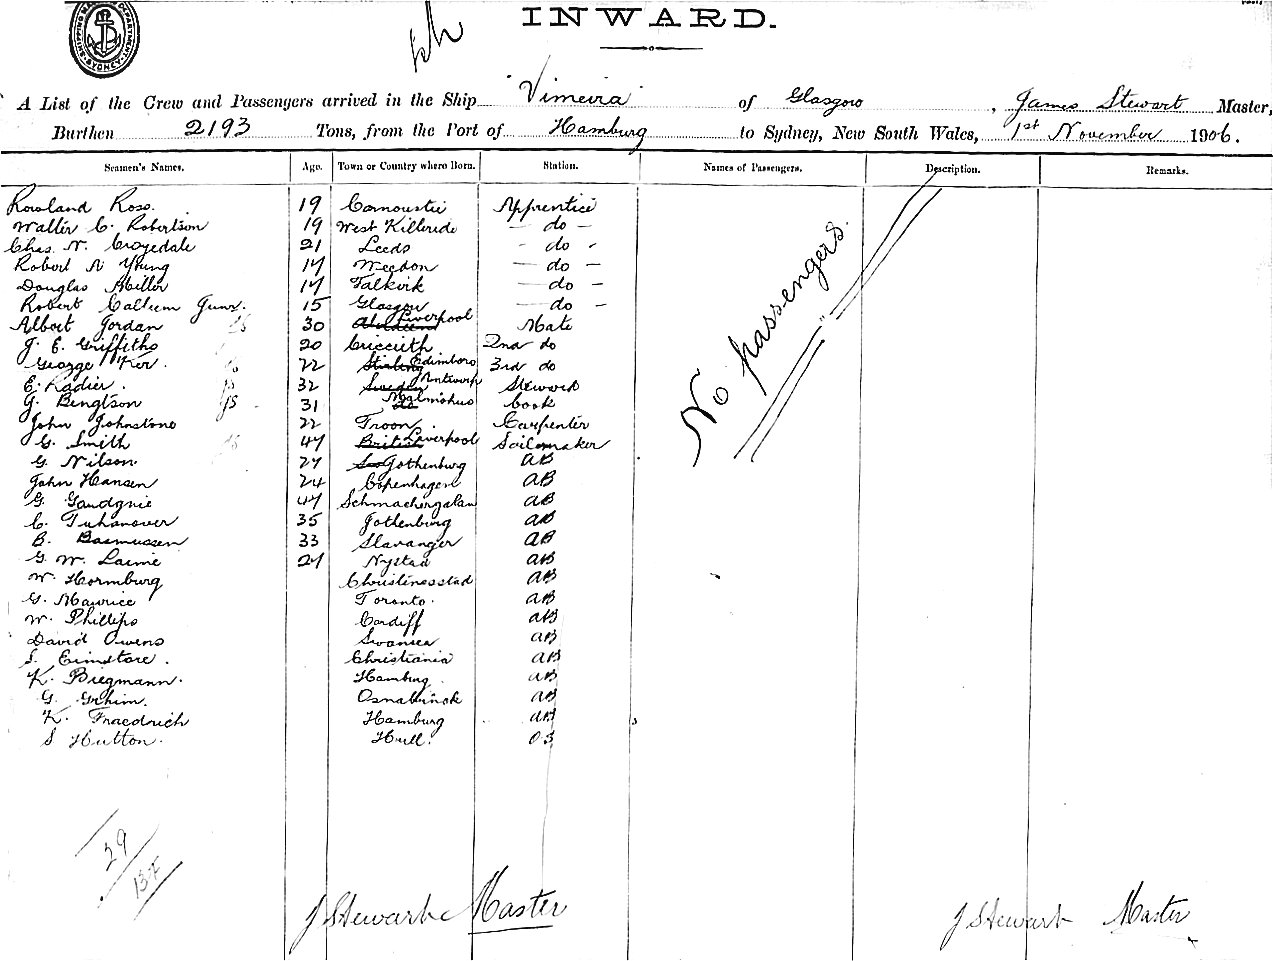 SHIPPING MASTER'S DEPARTMENT. SYDNEY
INWARD.
A List of the Crew and Passengers arrived in the Ship "Vimeira" of Glasgow, James Stewart Master,
Burthen 2193 Tons, from the Port of Hamburg to Sydney, New South Wales, 1st November 1906.
Seamen's Names. Age. Town or Country where Born. Station. Names of Passengers. Description. Remarks.
Rowland Ross. 19 Carnoustie Apprentice
Walter C. Robertson 19 West Kilbride - do -
Chas. N. Croysdale 21 Leeds - do -
Robert N Young 17 Weedon - do -
Douglas Miller 17 Falkirk - do -
Robert Callum Gunn. 15 Glasgow - do -
Albert Jordan 30 Aberdeen Liverpool Mate
J. E. Griffiths 20 Criccieth 2nd do
George Ker. 22 Stirling Edinboro 3rd do
E. Radier. 32 Sweden Antwerp Steward
G. Bengtson 31 do Malmohus Cook
John Johnstone 22 Troon. Carpenter
G. Smith 47 British Liverpool Sailmaker
G. Nilson. 27 Gothenburg AB
John Hansen 24 Copenhagen AB
G. 47 AB
C. Tuhanover 35 Gothenburg AB
B. Rasmussen 33 Stavanger AB
G. W. Laine 27 Nystad AB
W. Hormburg Christinesstad AB
G. Maurice Toronto. AB
W. Phillips Cardiff AB
David Owens Swansea AB
S. Christiania AB
K. Biegmann. Hamburg. AB
G. Osnabrück AB
K. Fraedrich Hamburg AB
S Hutton. Hull. OS
No passengers.
29
13F
J Stewart Master
J Stewart Master